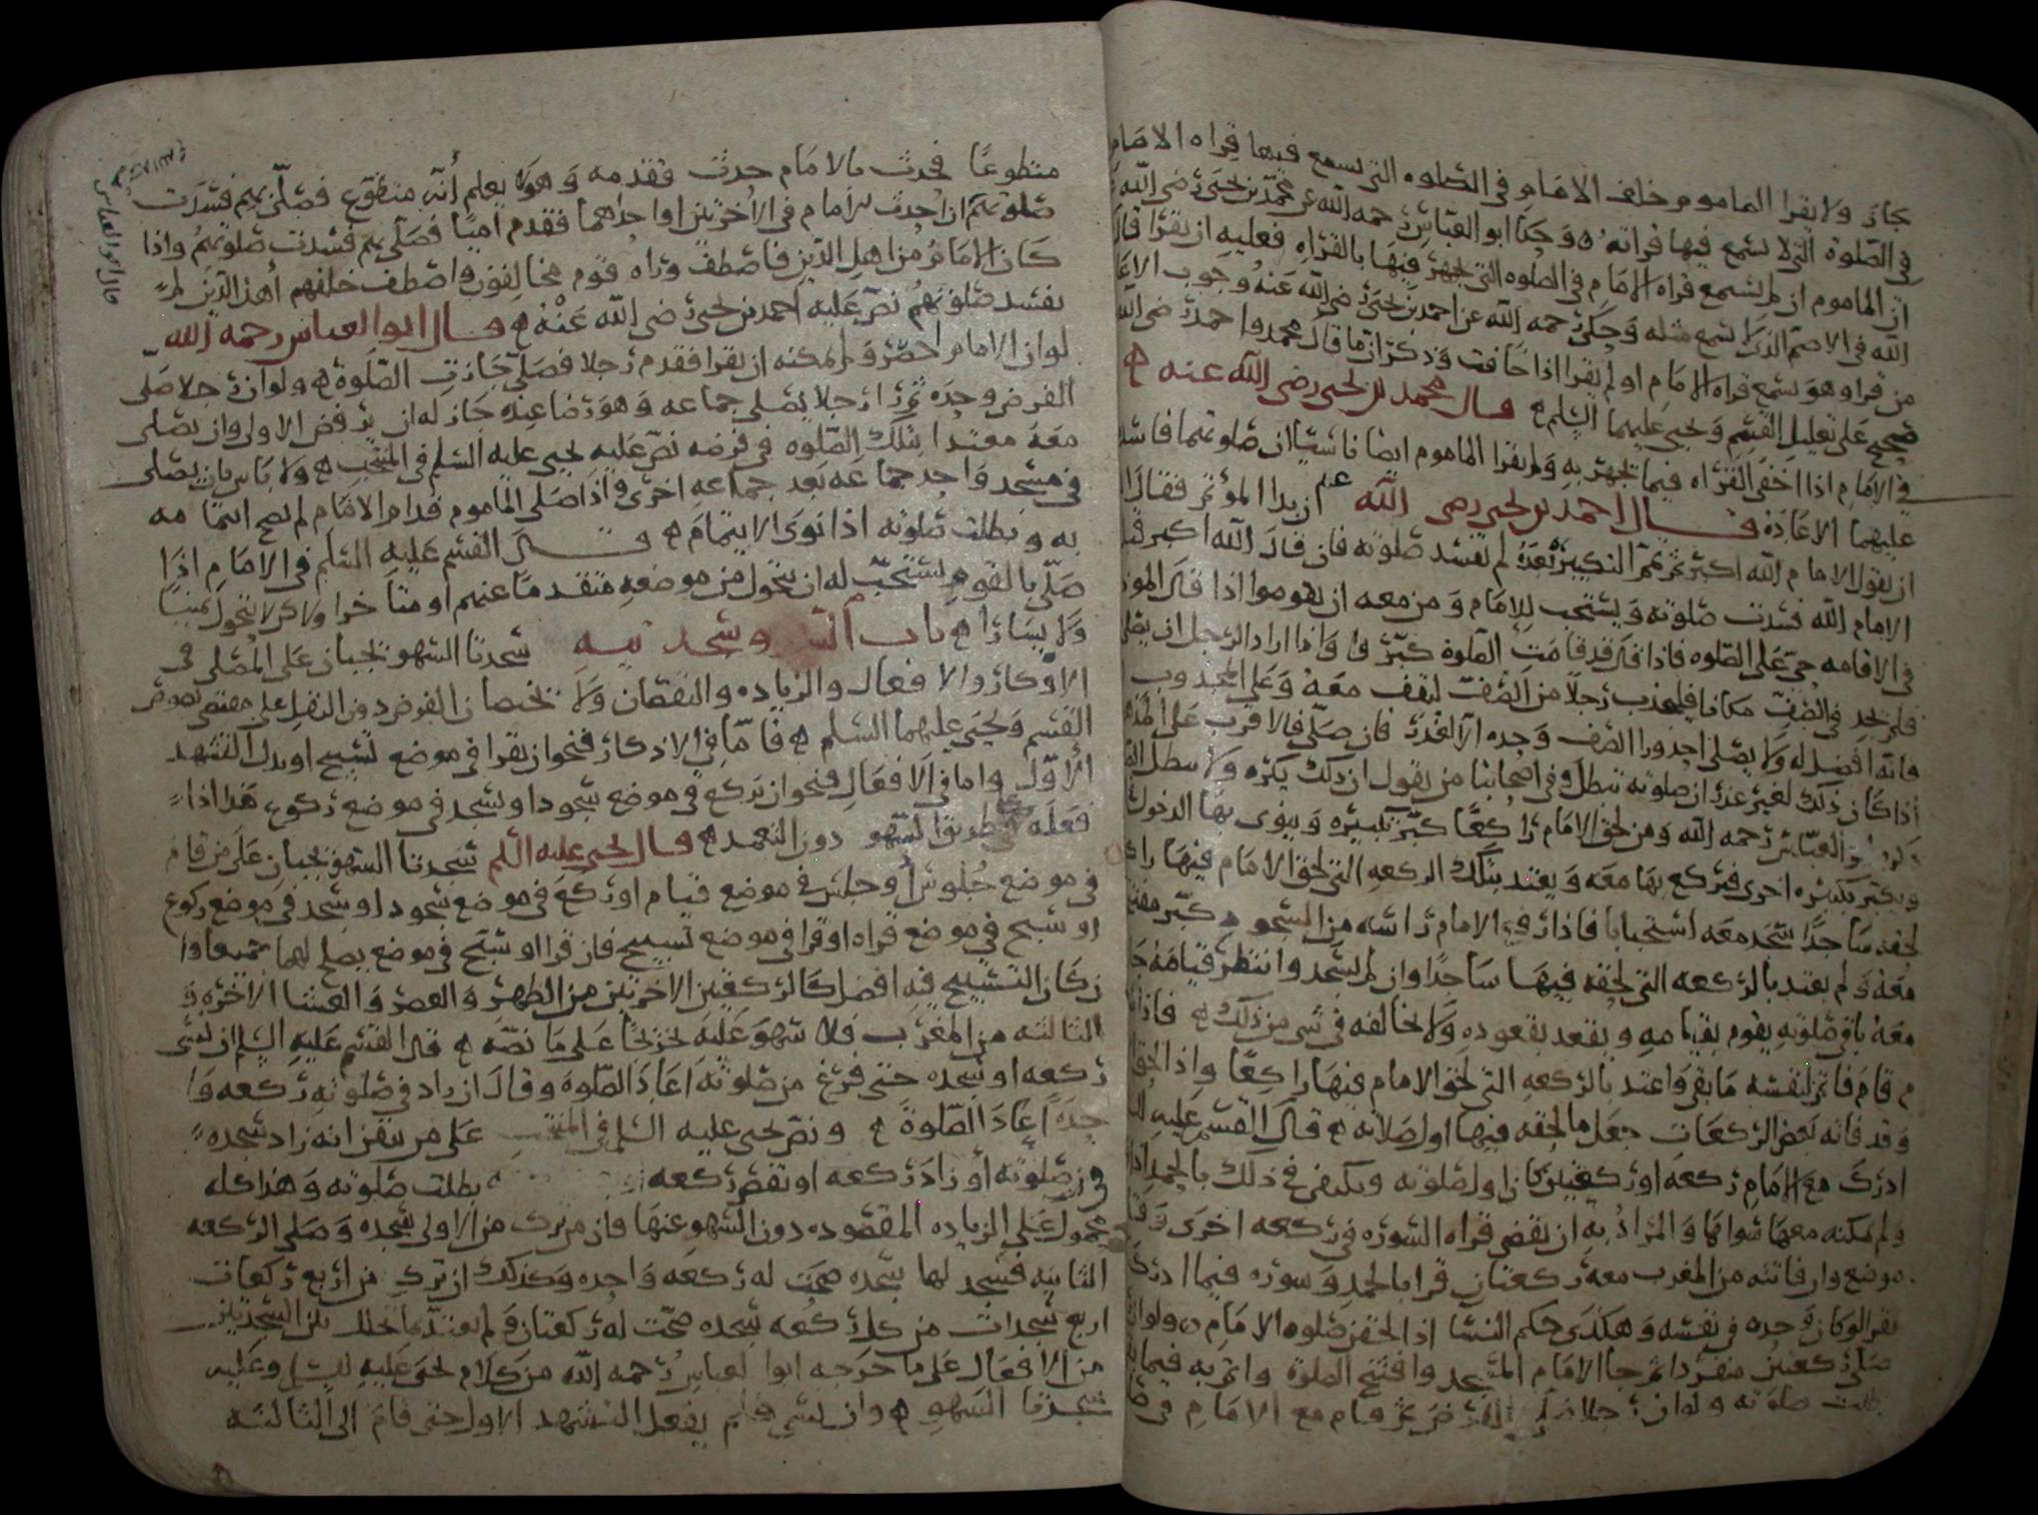 جاز ولا يقرا الماموم خلف الامام في الصلوه التي يسمع فيها قراه الامام
في الصلوة التي لا يسمع فيها قراته وحكا ابو العباس رحمه الله عن محمد بن يحيى رضي الله
ان الماموم ان لم يسمع قراه الامام في الصلوه التي يجهر فيها بالقراه فعليه ان يقرا قال
الله في الاصم الذي لا يسمع مثله وحكى رحمه الله عن احمد بن يحيى رضي الله عنه وجوب الاعا
من قرا وهو يسمع قراه الامام او لم يقرا اذا خافت وذكر ان ما قال محمد واحمد رضي الله
صحيح على تعليل القسم ويحيى عليهما السلم قال محمد بن يحيى رضي الله عنه
في الامام اذا اخفى القراه فيما يجهر به ولم يقرا الماموم ايضا ناسيا ان صلوتهما فاسد
عليهما الاعاده قال احمد بن يحيى رضي الله عنه ان بدا المؤتم فقال ا
ان يقول الامام الله اكبر ثم تمم التكبير بعده لم تفسد صلوته فان قال الله اكبر قبل
الامام الله فسدت صلوته ويستحب للامام ومن معه ان يقوموا اذا قال الموذ
في الاقامه حي على الصلوه فاذا قال قد قامت الصلوة كبر واذا اراد الرجل ان يصلي
فلم يجد في الصف مكانا فليجذب رجلا من الصف ليقف معه وعلى المجذوب
فانه افضل له ولا يصلي احد ورا الصف وحده الا لعذر فان صلى فالاقرب على المذهب
اذا كان ذلك لغير عذر ان صلوته تبطل وفي اصحابنا من يقول ان ذلك يكره ولا يبطل
ابو العباس رحمه الله ومن لحق الامام راكعا كبر تكبيره وينوي بها الدخول
ويكبر تكبيره اخرى فيركع بها معه ويعتد بتلك الركعه التي لحق الامام فيها راك
لحقه ساجدا سجد معه استحبابا فاذا رفع الامام راسه من السجود كبر مفتتح
معه ولم يعتد بالركعه التي لحقه فيها ساجدا وان لم يسجد وانتظر قيامه جا
معه باقي صلوته يقوم بقيامه ويقعد بقعوده ولا يخالفه في شي من ذلك فاذا
قام فاتم لنفسه ما بقي واعتد بالركعه التي لحق الامام فيها راكعا واذا لحق
وقد فاته بعض الركعات جعل ما لحقه فيها اول صلاته قال القسم عليه
ادرك مع الامام ركعه او ركعتين كان اول صلوته ويكتفى في ذلك بالحمد اذا
ولم يمكنه معها سواها والمراد به ان يقضي قراه السوره في ركعه اخرى
موضع وان فاتته من المغرب معه ركعتان قرا بالحمد وسوره فيما ادرك
يقرا لو كان وحده في نفسه وهكذى حكم النسا اذا لحقن صلوه الامام ولو ان
صلى ركعتين منفردا ثم جا الامام المسجد وافتتح الصلوة واتم به فيما
بطلت صلوته ولو ان رجلا ثم قام مع الامام في
متطوعا فحدث بالامام حدث فقدمه وهو لا يعلم أنه متطوع فصلى بهم فسدت
صلوتهم ان احدث الامام في الاخرتين او احداهما فقدم اميا فصلى بهم فسدت صلوتهم واذا
كان الامام من اهل الدين فاصطف وراه قوم مخالفون واصطف خلفهم أهل الدين لم
تفسد صلوتهم نص عليه احمد بن يحيى رضي الله عنه قال ابو العباس رحمه الله
لو ان الامام احصر ولم يمكنه ان يقرا فقدم رجلا فصلى جازت الصلوة ولو ان رجلا صلى
الفرض وحده ثم را رجلا يصلي جماعه وهو رضا عنده جاز له ان يرفض الاولى وان يصلي
معه معتدا بتلك الصلوه في فرضه نص عليه يحيى عليه السلم في المنتخب ولا باس بان يصلي
في مسجد واحد جماعه بعد جماعه اخرى واذا صلى الماموم قدام الامام لم يصح ايتمامه
به وبطلت صلوته اذا نوى الايتمام قال القسم عليه السلم في الامام اذا
صلى بالقوم يستحب له ان يتحول من موضعه متقدما عنهم او متاخرا ولا كن لا يتحول يمينا
ولا يسارا باب السهو وسجدتيه سجدتا السهو تجبان على المصلي في
الاذكار والافعال والزياده والنقصان ولا تختصان الفرض دون النفل على مقتضى نصوص
القسم ويحيى عليهما السلم فاما في الاذكار فنحو ان يقرا في موضع تسبيح او بدل التشهد
الأول واما في الافعال فنحو ان يركع في موضع سجود او يسجد في موضع ركوع هذا اذا
فعله على طريق السهو دون التعمد قال يحيى عليه السلم سجدتا السهو تجبان على من قام
في موضع جلوس أو جلس في موضع قيام او ركع في موضع سجود او سجد في موضع ركوع
او سبح في موضع قراه او قرا في موضع تسبيح فان قرا او سبح في موضع يصلح لهما جميعا وا
ن كان التسبيح فيه افضل كالركعتين الاخرتين من الظهر والعصر والعشا الاخره و
الثالثه من المغرب فلا سهو عليه تخريجا على ما نصه قال القسم عليه السلم ان نسي
ركعه او سجده حتى فرغ من صلوته اعاد الصلوة وقال ان زاد في صلوته ركعه وا
حده اعاد الصلوة ونص يحيى عليه السلم في المنتخب على من تيقن انه زاد سجده
في صلوته أو زاد ركعه او نقص ركعه بطلت صلوته وهذا كله
محمول على الزياده المقصوده دون السهو عنها فان من ترك من الاولى سجده وصلى الركعه
الثانيه فسجد لها سجده صحت له ركعه واحده وكذلك ان ترك من اربع ركعات
اربع سجدات من كل ركعه سجده صحت له ركعتان ولم يعتد بما تخلل بين السجدتين
من الافعال على ما خرجه ابو العباس رحمه الله من كلام يحيى عليه السلم وعليه
سجدتا السهو وان نسي ولم يفعل التشهد الاول حتى قام الى الثالثه
قال ابو العباس